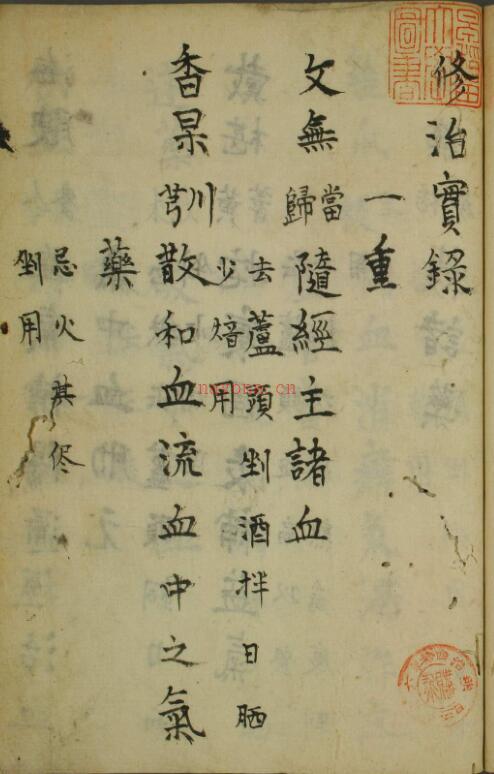 修治實錄
一重
文無 當歸 隨經主諸血
去蘆頭剉酒拌日晒
少焙用
香果 川芎 散和血流血中之氣
藥
忌火其侭
剉用